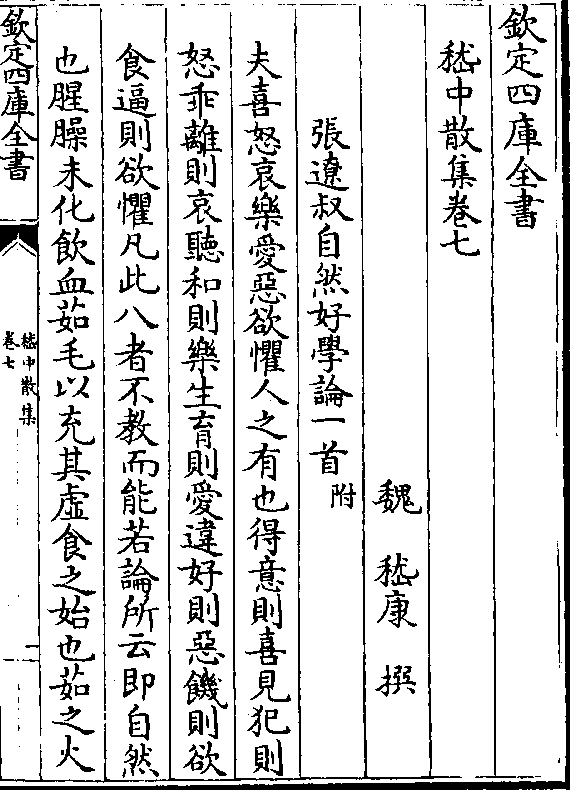 欽定四庫全書
嵇中散集卷七
魏 嵇康 撰
張遼叔自然好學論一首附
夫喜怒哀樂愛惡欲懼人之有也得意則喜見犯則
怒乖離則哀聽和則樂生育則愛違好則惡饑則欲
食逼則欲懼凡此八者不教而能若論所云即自然
也腥臊未化飲血茹毛以充其虛食之始也茹之火
欽定四庫全書
嵇中散集
卷七
一